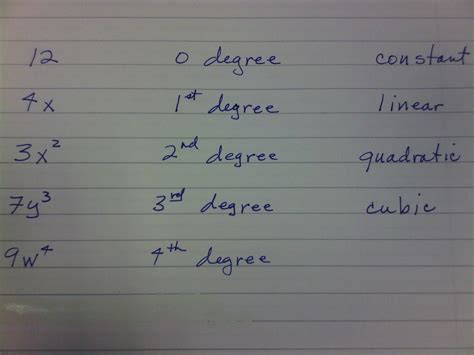 12 0 degree constant
4x 1st degree linear
3x² 2nd degree quadratic
7y³ 3rd degree cubic
9w⁴ 4th degree